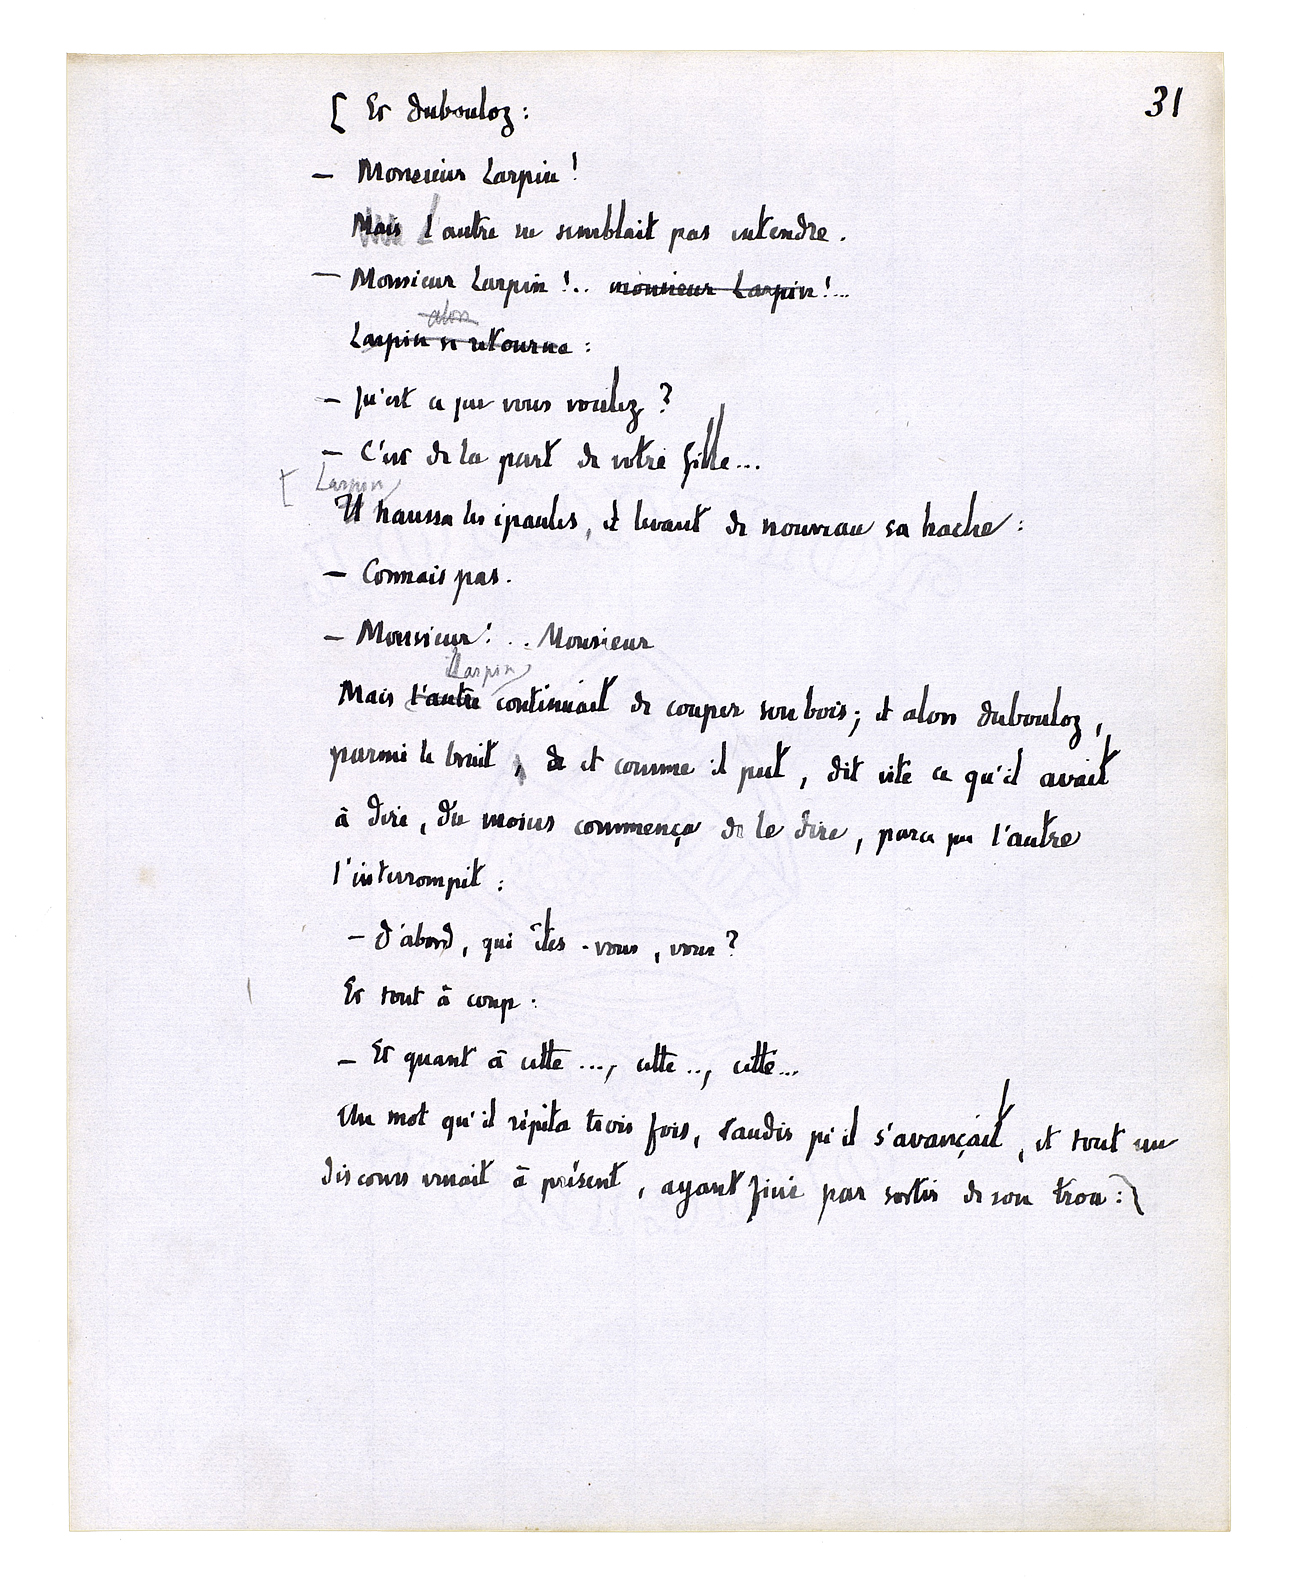 31
[ Et Dubouloz :
— Monsieur Larpin !
Mais L'autre ne semblait pas entendre.
— Monsieur Larpin !.. monsieur Larpin !...
alors
Larpin se retourne :
— Qu'est ce que vous voulez ?
— C'est de la part de votre fille...
[ Larpin
Il haussa les épaules, et levant de nouveau sa hache :
— Connais pas.
— Monsieur ! .. Monsieur
Larpin
Mais l'autre continuait de couper son bois ; et alors Dubouloz,
parmi le bruit, et comme il put, dit vite ce qu'il avait
à dire, du moins commença de le dire, parce que l'autre
l'interrompit :
— D'abord, qui êtes-vous, vous ?
Et tout à coup :
— Et quant à cette ..., cette .., cette...
Un mot qu'il répéta trois fois, tandis qu'il s'avançait, et tout un
discours venait à présent, ayant fini par sortir de son trou : ]